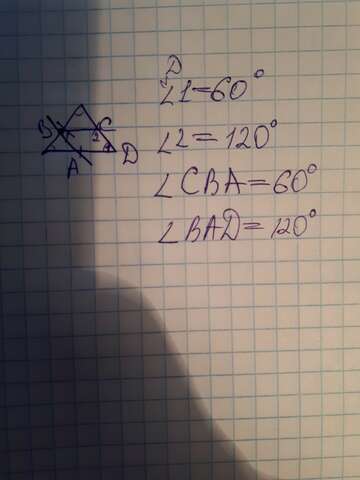 D
∠1=60°
∠2=120°
∠CBA=60°
∠BAD=120°
B
C
2
1
A
D